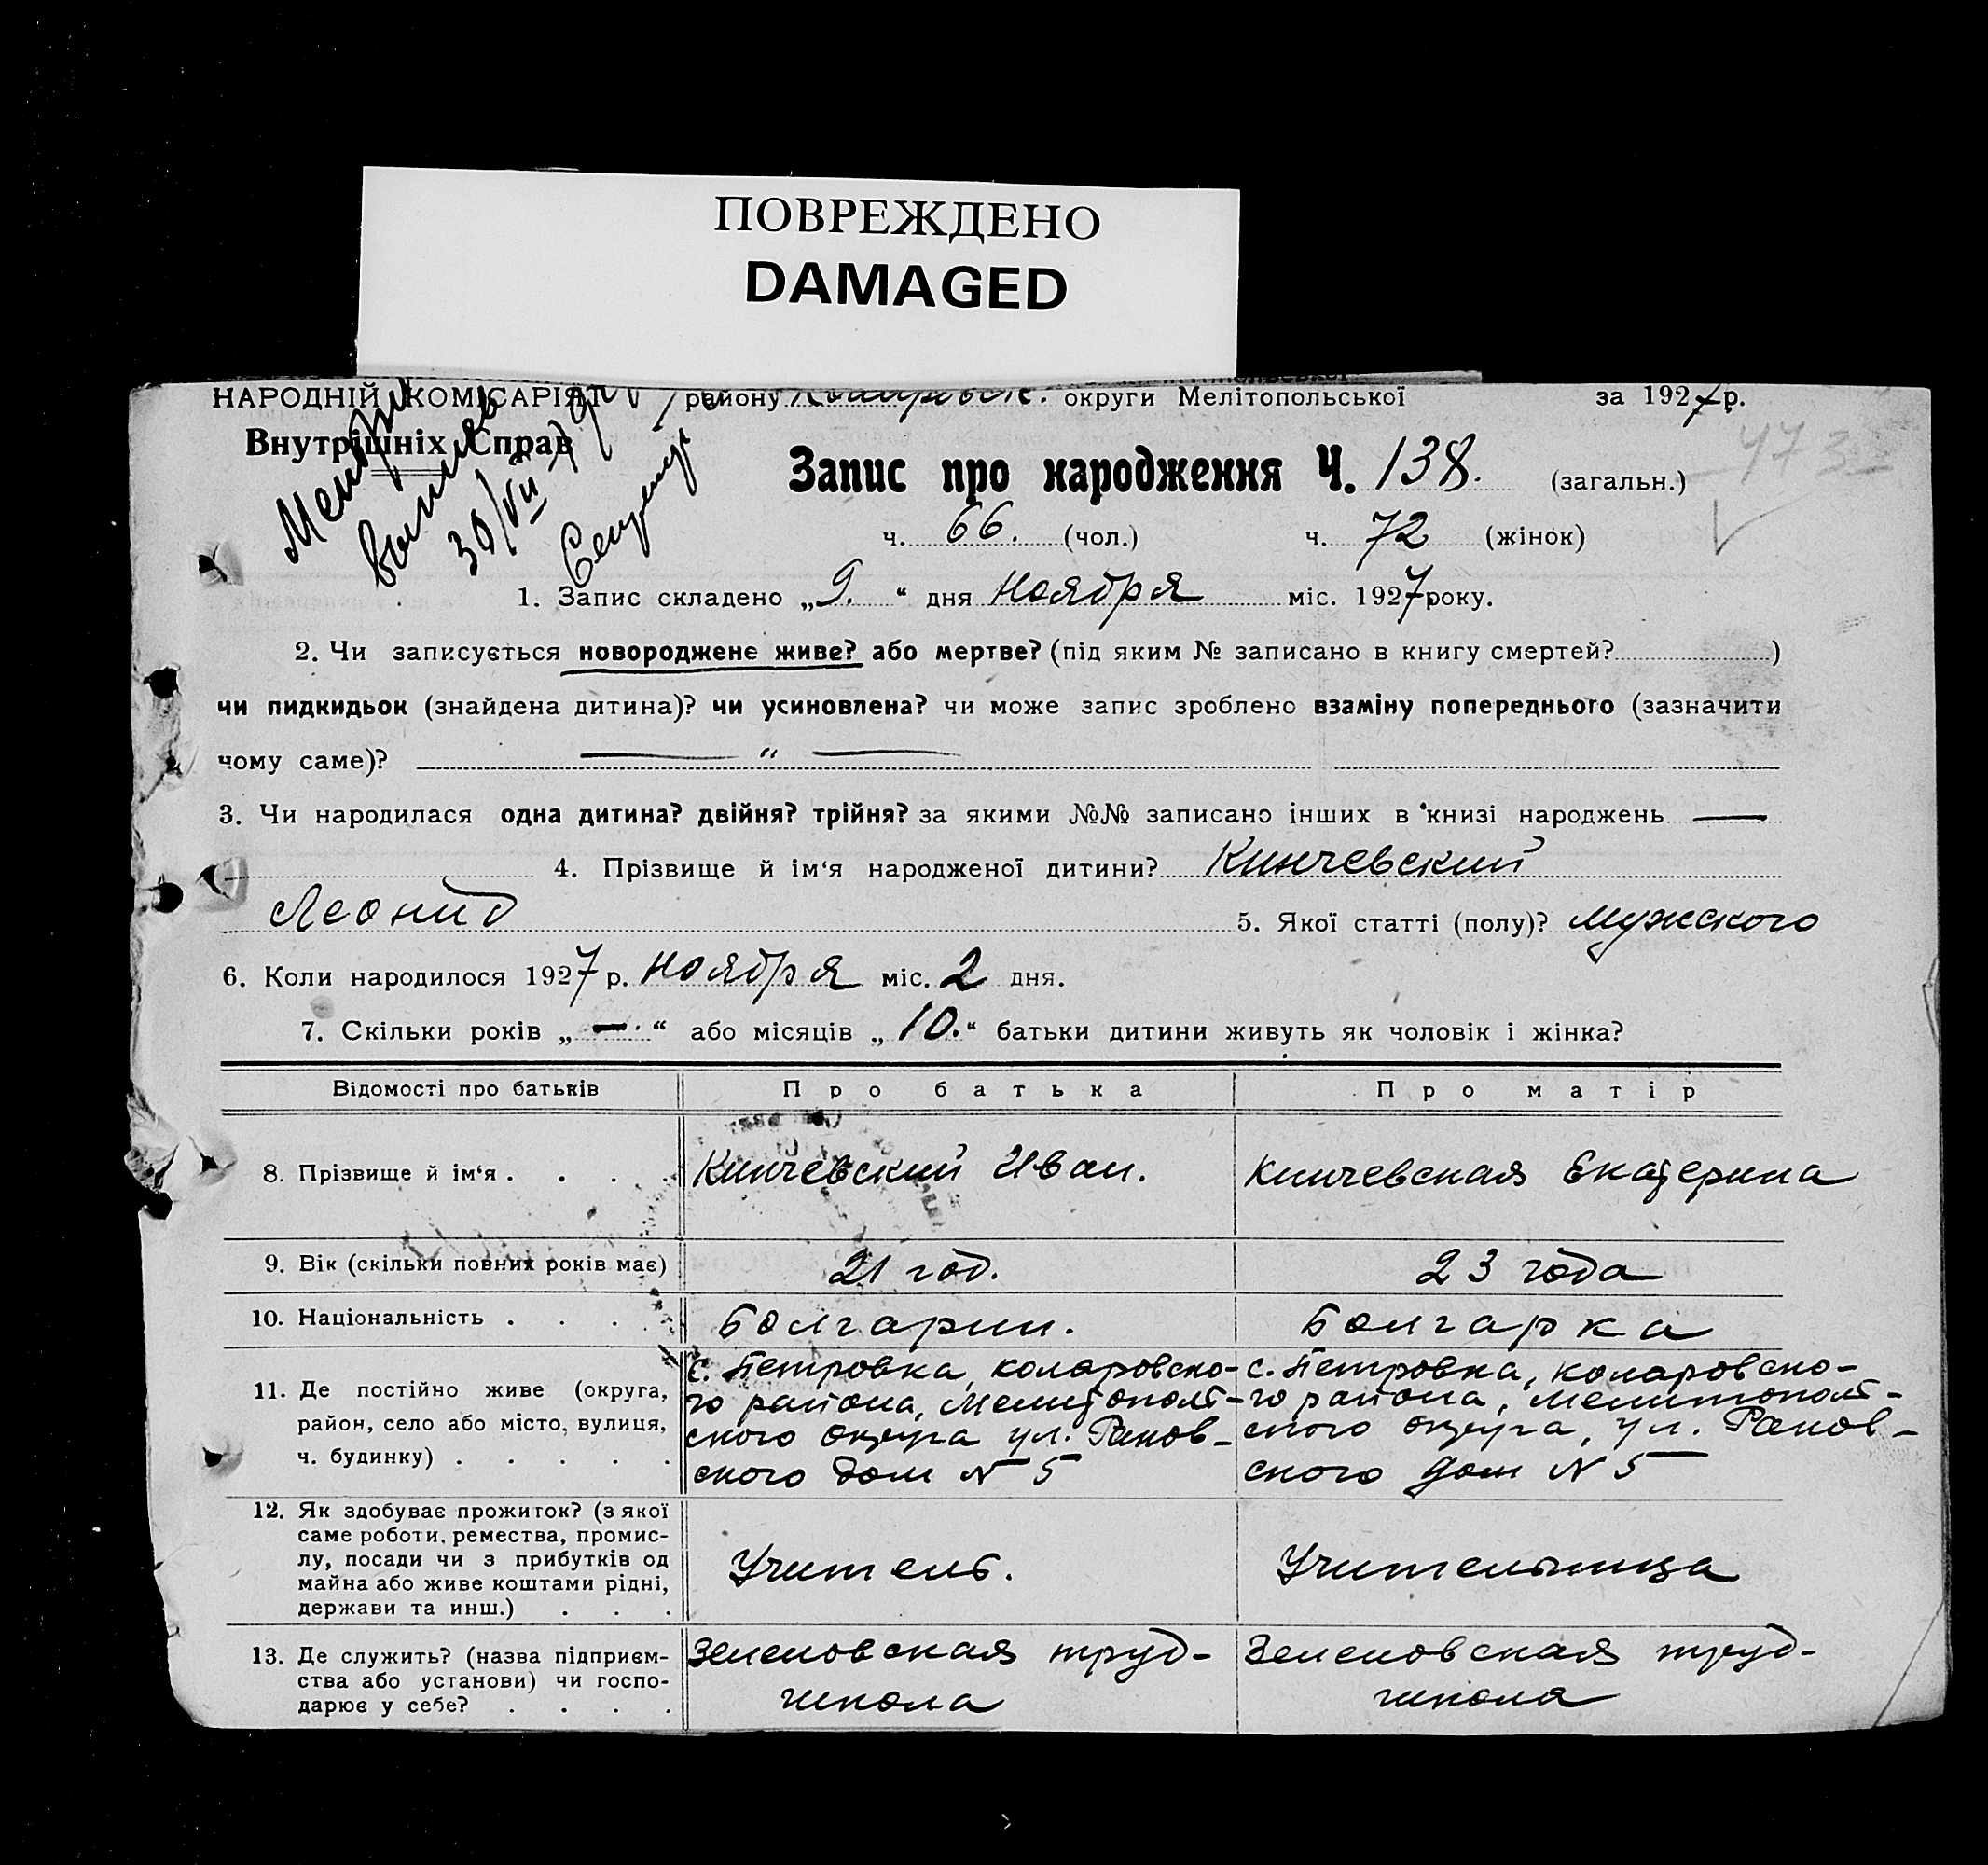 ПОВРЕЖДЕНО
DAMAGED
НАРОДНІЙ КОМІСАРІЯТ району округи Мелітопольської за 1927 р.
Внутрішніх Справ
выписка
30/VII
473
Запис про народження Ч. 138. (загальн.)
ч. 66. (чол.) ч. 72 (жінок)
1. Запис складено „9.“ дня Ноября міс. 1927 року.
2. Чи записується новороджене живе? або мертве? (під яким № записано в книгу смертей? )
чи пидкидьок (знайдена дитина)? чи усиновлена? чи може запис зроблено взаміну попереднього (зазначити
чому саме)? — " —
3. Чи народилася одна дитина? двійня? трійня? за якими №№ записано інших в книзі народжень —
4. Прізвище й ім‘я народженої дитини? Кинчевский
Леонид 5. Якої статті (полу)? мужского
6. Коли народилося 1927 р. Ноября міс. 2 дня.
7. Скільки років „ — “ або місяців „ 10. “ батьки дитини живуть як чоловік і жінка?
Відомості про батьків Про батька Про матір
8. Прізвище й ім‘я . . . . Кинчевский Иван. Кинчевская Екатерина
9. Вік (скільки повних років має) 21 год. 23 года
10. Національність . . . . Болгарин. Болгарка
11. Де постійно живе (округа, район, село або місто, вулиця, ч. будинку) . . . . .
с. Петровка, Коларовско-
го района, Мелитополь-
ского округа ул. Раков-
ского дом N 5
с. Петровка, Коларовско-
го района, Мелитополь-
ского округа, ул. Раков-
ского дом N 5
12. Як здобуває прожиток? (з якої
саме роботи, ремества, промис-
лу, посади чи з прибутків од
майна або живе коштами рідні,
держави та инш.) . . .
Учитель. Учительница
13. Де служить? (назва підприєм-
ства або установи) чи госпо-
дарює у себе? . . . .
Зеленовская труд-
школа
Зеленовская труд-
школа